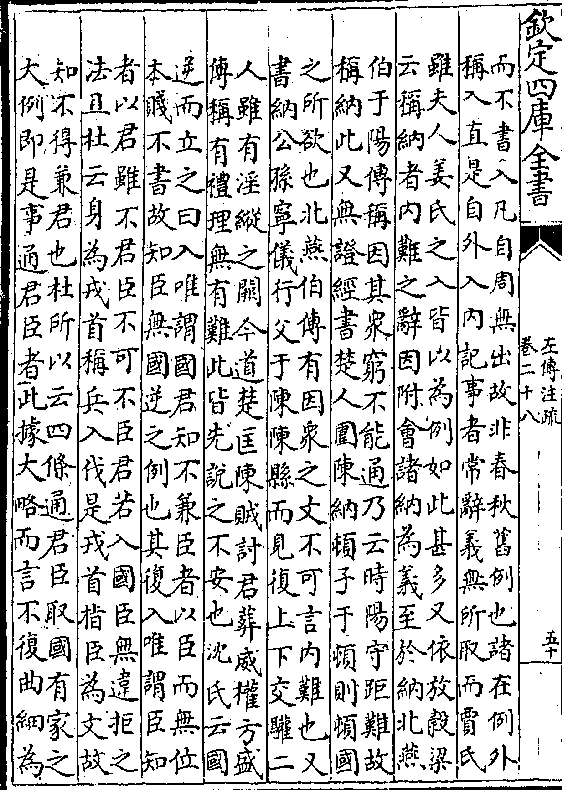 欽定四庫全書
左傳注疏
卷二十八
五十
而不書入凡自周無出故非春秋舊例也諸在例外
稱入直是自外入内記事者常辭義無所取而賈氏
雖夫人姜氏之入皆以為例如此甚多又依放穀梁
云稱納者内難之辭因附會諸納為義至於納北燕
伯于陽傳稱因其衆窮不能通乃云時陽守距難故
稱納此又無證經書楚人圍陳納頓子于頓則頓國
之所欲也北燕伯傳有因衆之文不可言内難也又
書納公孫寧儀行父于陳陳縣而見復上下交驩二
人雖有淫縱之闕今道楚匡陳賊討君葬威權方盛
傳稱有禮理無有難此皆先說之不安也沈氏云國
逆而立之曰入唯謂國君知不兼臣者以臣而無位
本賤不書故知臣無國逆之例也其復入唯謂臣知
者以君雖不君臣不可不臣君若入國臣無違拒之
法且杜云身為戎首稱兵入伐是戎首指臣為文故
知不得兼君也杜所以云四條通君臣取國有家之
大例即是事通君臣者此據大略而言不復曲細為